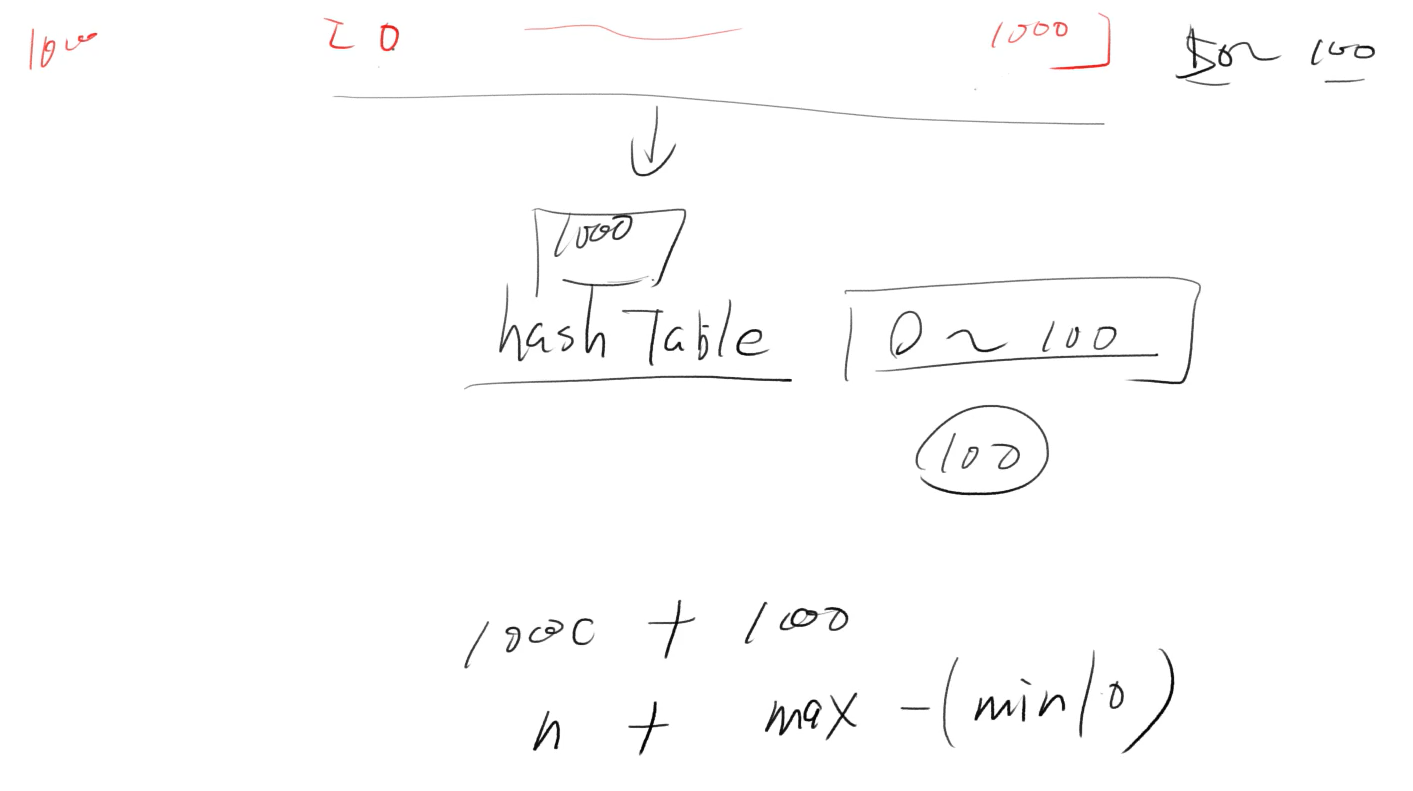 1000 [ 0 1000 ] 50~ 100
1000
hash Table 0 ~ 100
100
1000 + 1000
n + max - (min/0)